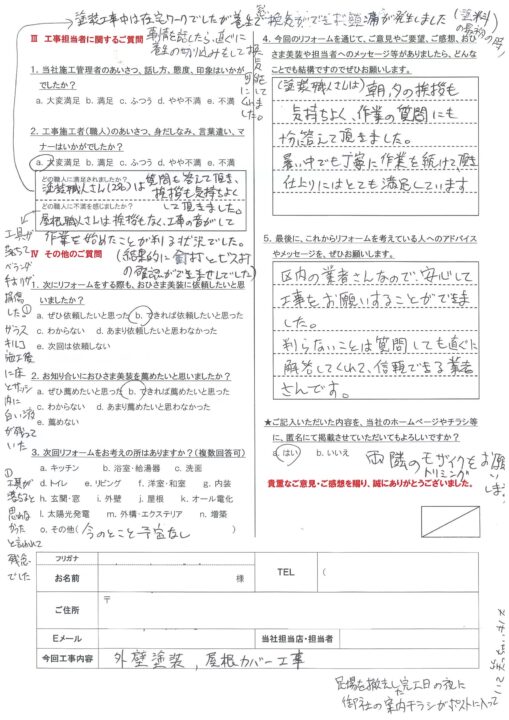 塗装工事中は在宅ワークでしたが養生で換気ができず頭痛が発生しました(塗料の最初の時)
事情を話したら、直ぐに養生の切り込みをして換気可能にしてくれました。
III 工事担当者に関するご質問
1. 当社施工管理者のあいさつ、話し方、態度、印象はいかがでしたか?
a. 大変満足 b. 満足 c. ふつう d. やや不満 e. 不満
2. 工事施工者(職人)のあいさつ、身だしなみ、言葉遣い、マナーはいかがでしたか?
a. 大変満足 b. 満足 c. ふつう d. やや不満 e. 不満
どの職人に満足されましたか?
塗装職人さん(2名)は質問も答えて頂き、挨拶も気持ちよくして頂きました。
どの職人に不満を感じましたか?
屋根職人さんは挨拶もなく、工事の音がして
作業を始めたことが判る状況でした。
(結果的に釘打ちとビス打ちの確認ができませんでした)
工具が落ちてベランダ手すりが損傷した①
ガラスキルコ施工後に床とサッシ内に白い液が残っていた
①工具が落ちると思わなかったと言われて残念でした
IV その他のご質問
1. 次にリフォームをする際も、おひさま美装に依頼したいと思いましたか?
a. ぜひ依頼したいと思った b. できれば依頼したいと思った
c. わからない d. あまり依頼したいと思わなかった
e. 次回は依頼しない
2. お知り合いにおひさま美装を薦めたいと思いましたか?
a. ぜひ薦めたいと思った b. できれば薦めたいと思った
c. わからない d. あまり薦めたいと思わなかった
e. 薦めない
3. 次回リフォームをお考えの所はありますか?(複数回答可)
a. キッチン b. 浴室・給湯器 c. 洗面
d. トイレ e. リビング f. 洋室・和室 g. 内装
h. 玄関・窓 i. 外壁 j. 屋根 k. オール電化
l. 太陽光発電 m. 外構・エクステリア n. 増築
o. その他( 今のところ予定なし )
4. 今回のリフォームを通じて、ご意見やご要望、ご感想、おひさま美装や担当者へのメッセージ等がありましたら、どんなことでも結構ですのでぜひお願いします。
(塗装職人さんは)朝、夕の挨拶も
気持ちよく、作業の質問にも
答えて頂きました。
暑い中でも丁寧に作業を続けて頂き
仕上りにはとても満足しています
5. 最後に、これからリフォームを考えている人へのアドバイスやメッセージを、ぜひお願いします。
区内の業者さんなので、安心して
工事をお願いすることができま
した。
判らないことは質問しても直ぐに
解答してくれて、信頼できる業者
さんです。
★ご記入いただいた内容を、当社のホームページやチラシ等に、匿名にて掲載させていただいてもよろしいですか?
a. はい b. いいえ
両隣のモザイクをお願いします
トリミング
貴重なご意見・ご感想を賜り、誠にありがとうございました。
フリガナ
お名前 様 TEL (
ご住所 〒
Eメール 当社担当店・担当者
今回工事内容 外壁塗装、屋根カバー工事
足場を撤去した完工日の夜に
御社の案内チラシがポストに入って